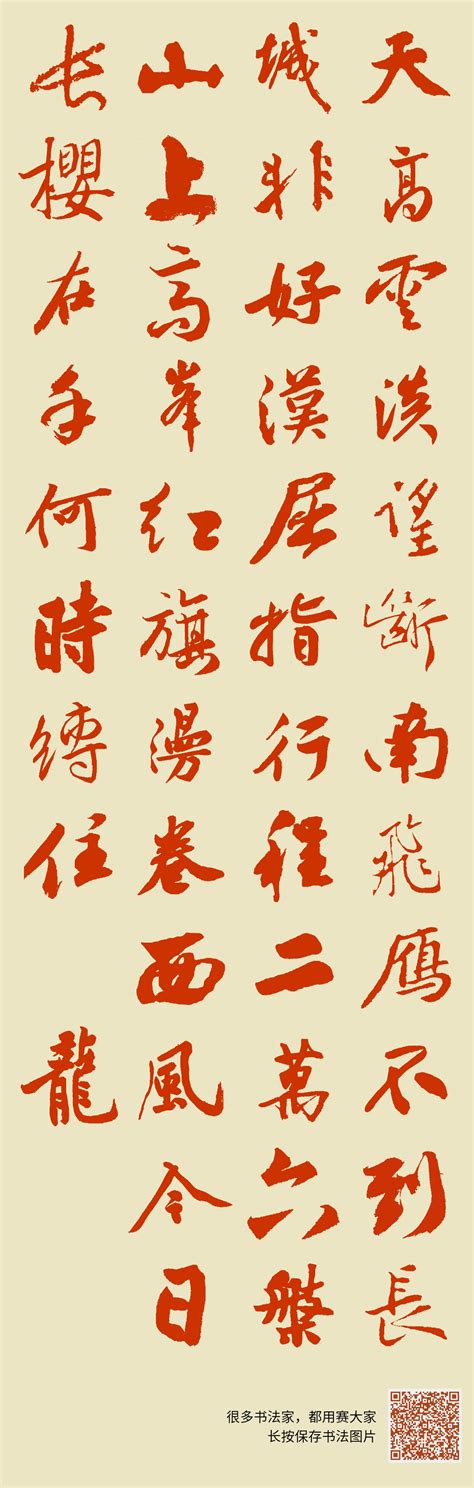 天高雲淡望斷南飛雁不到長
城非好漢屈指行程二萬六盤
山上高峯红旗漫卷西風今日
长櫻在手何時縛住龍
很多书法家，都用赛大家
长按保存书法图片